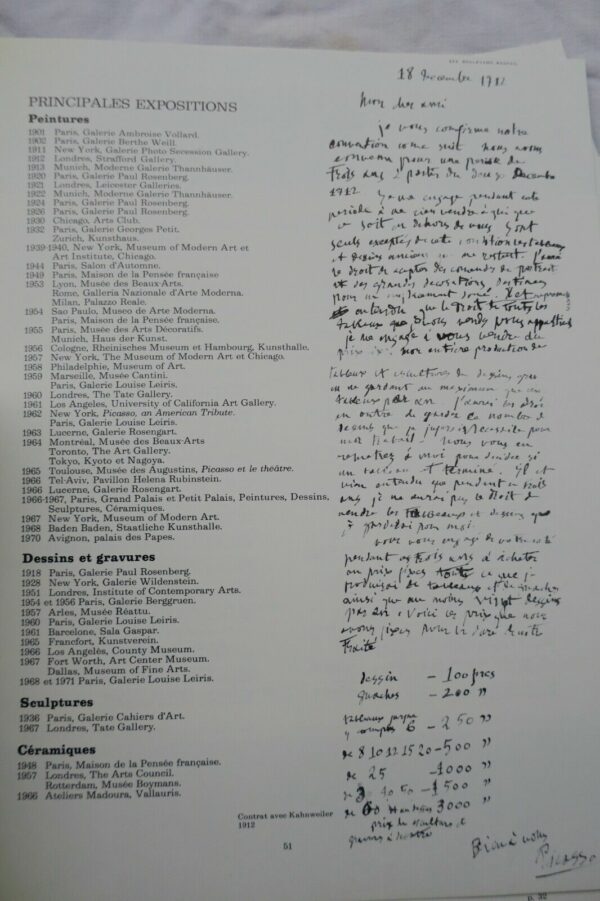 PRINCIPALES EXPOSITIONS
Peintures
1901 Paris, Galerie Ambroise Vollard.
1902 Paris, Galerie Berthe Weill.
1911 New York, Galerie Photo Secession Gallery.
1912 Londres, Strafford Gallery.
1913 Munich, Moderne Galerie Thannhäuser.
1920 Paris, Galerie Paul Rosenberg.
1921 Londres, Leicester Galleries.
1922 Munich, Moderne Galerie Thannhäuser.
1924 Paris, Galerie Paul Rosenberg.
1926 Paris, Galerie Paul Rosenberg.
1930 Chicago, Arts Club.
1932 Paris, Galerie Georges Petit.
Zurich, Kunsthaus.
1939-1940, New York, Museum of Modern Art et
Art Institute, Chicago.
1944 Paris, Salon d'Automne.
1949 Paris, Maison de la Pensée française
1953 Lyon, Musée des Beaux-Arts.
Rome, Galleria Nazionale d'Arte Moderna.
Milan, Palazzo Reale.
1954 Sao Paulo, Museo de Arte Moderna.
Paris, Maison de la Pensée française.
1955 Paris, Musée des Arts Décoratifs.
Munich, Haus der Kunst.
1956 Cologne, Rheinisches Museum et Hambourg, Kunsthalle.
1957 New York, The Museum of Modern Art et Chicago.
1958 Philadelphie, Museum of Art.
1959 Marseille, Musée Cantini.
Paris, Galerie Louise Leiris.
1960 Londres, The Tate Gallery.
1961 Los Angeles, University of California Art Gallery.
1962 New York, Picasso, an American Tribute.
Paris, Galerie Louise Leiris.
1963 Lucerne, Galerie Rosengart.
1964 Montréal, Musée des Beaux-Arts
Toronto, The Art Gallery.
Tokyo, Kyoto et Nagoya.
1965 Toulouse, Musée des Augustins, Picasso et le théâtre.
1966 Tel-Aviv, Pavillon Helena Rubinstein.
1966 Lucerne, Galerie Rosengart.
1966-1967, Paris, Grand Palais et Petit Palais, Peintures, Dessins,
Sculptures, Céramiques.
1967 New York, Museum of Modern Art.
1968 Baden Baden, Staatliche Kunsthalle.
1970 Avignon, palais des Papes.
Dessins et gravures
1918 Paris, Galerie Paul Rosenberg.
1928 New York, Galerie Wildenstein.
1951 Londres, Institute of Contemporary Arts.
1954 et 1956 Paris, Galerie Berggruen.
1957 Arles, Musée Réattu.
1960 Paris, Galerie Louise Leiris.
1961 Barcelone, Sala Gaspar.
1965 Francfort, Kunstverein.
1966 Los Angelès, County Museum.
1967 Fort Worth, Art Center Museum.
Dallas, Museum of Fine Arts.
1968 et 1971 Paris, Galerie Louise Leiris.
Sculptures
1936 Paris, Galerie Cahiers d'Art.
1967 Londres, Tate Gallery.
Céramiques
1948 Paris, Maison de la Pensée française.
1957 Londres, The Arts Council.
Rotterdam, Musée Boymans.
1966 Ateliers Madoura, Vallauris.
Contrat avec Kahnweiler
1912
51
18 1912
Mon cher ami
je vous confirme notre
convention come suit nous nous
convenu pour une periode de
trois ans a partir du
1912.
periode à ne rien vendre à qui que
ce soit en dehors de vous Sont
seuls exceptés de cete
et dessins anciens me restent J'aurai
le droit de acepter des de portrait
et des grandes decorations
que le Droit de tout les
tableaux que vous
je me engage à vous vendre
mon entiere production de
tableaux et sculptures de dessins
J'aurai
en outre de garder le nombre de
pour
mon travail. Vous vous en
remetrez à moi pour decider si
un tableau est terminé. Il est
bien entendu que pendent ces trois
ans je ne aurai pas le droit de
vendre les tableaux et dessins que
je pour moi
vous vous engagé de votre coté
pendant ces trois ans à acheter
au prix fixes tout ce que je
produirai de tableaux et
ainsi que au moins vingt dessins
par an. Voici les prix que nous
avons fixés pour la
traité
dessin - 100
- 200 "
tableaux jusque
y compris 6 - 250 "
de 8 10 12 15 20 - 500 "
de 25 - 1000 "
de 40 50 - 1500 "
de 60 3000 "
prix de sculture et
Bien à vous
Picasso
p. 32